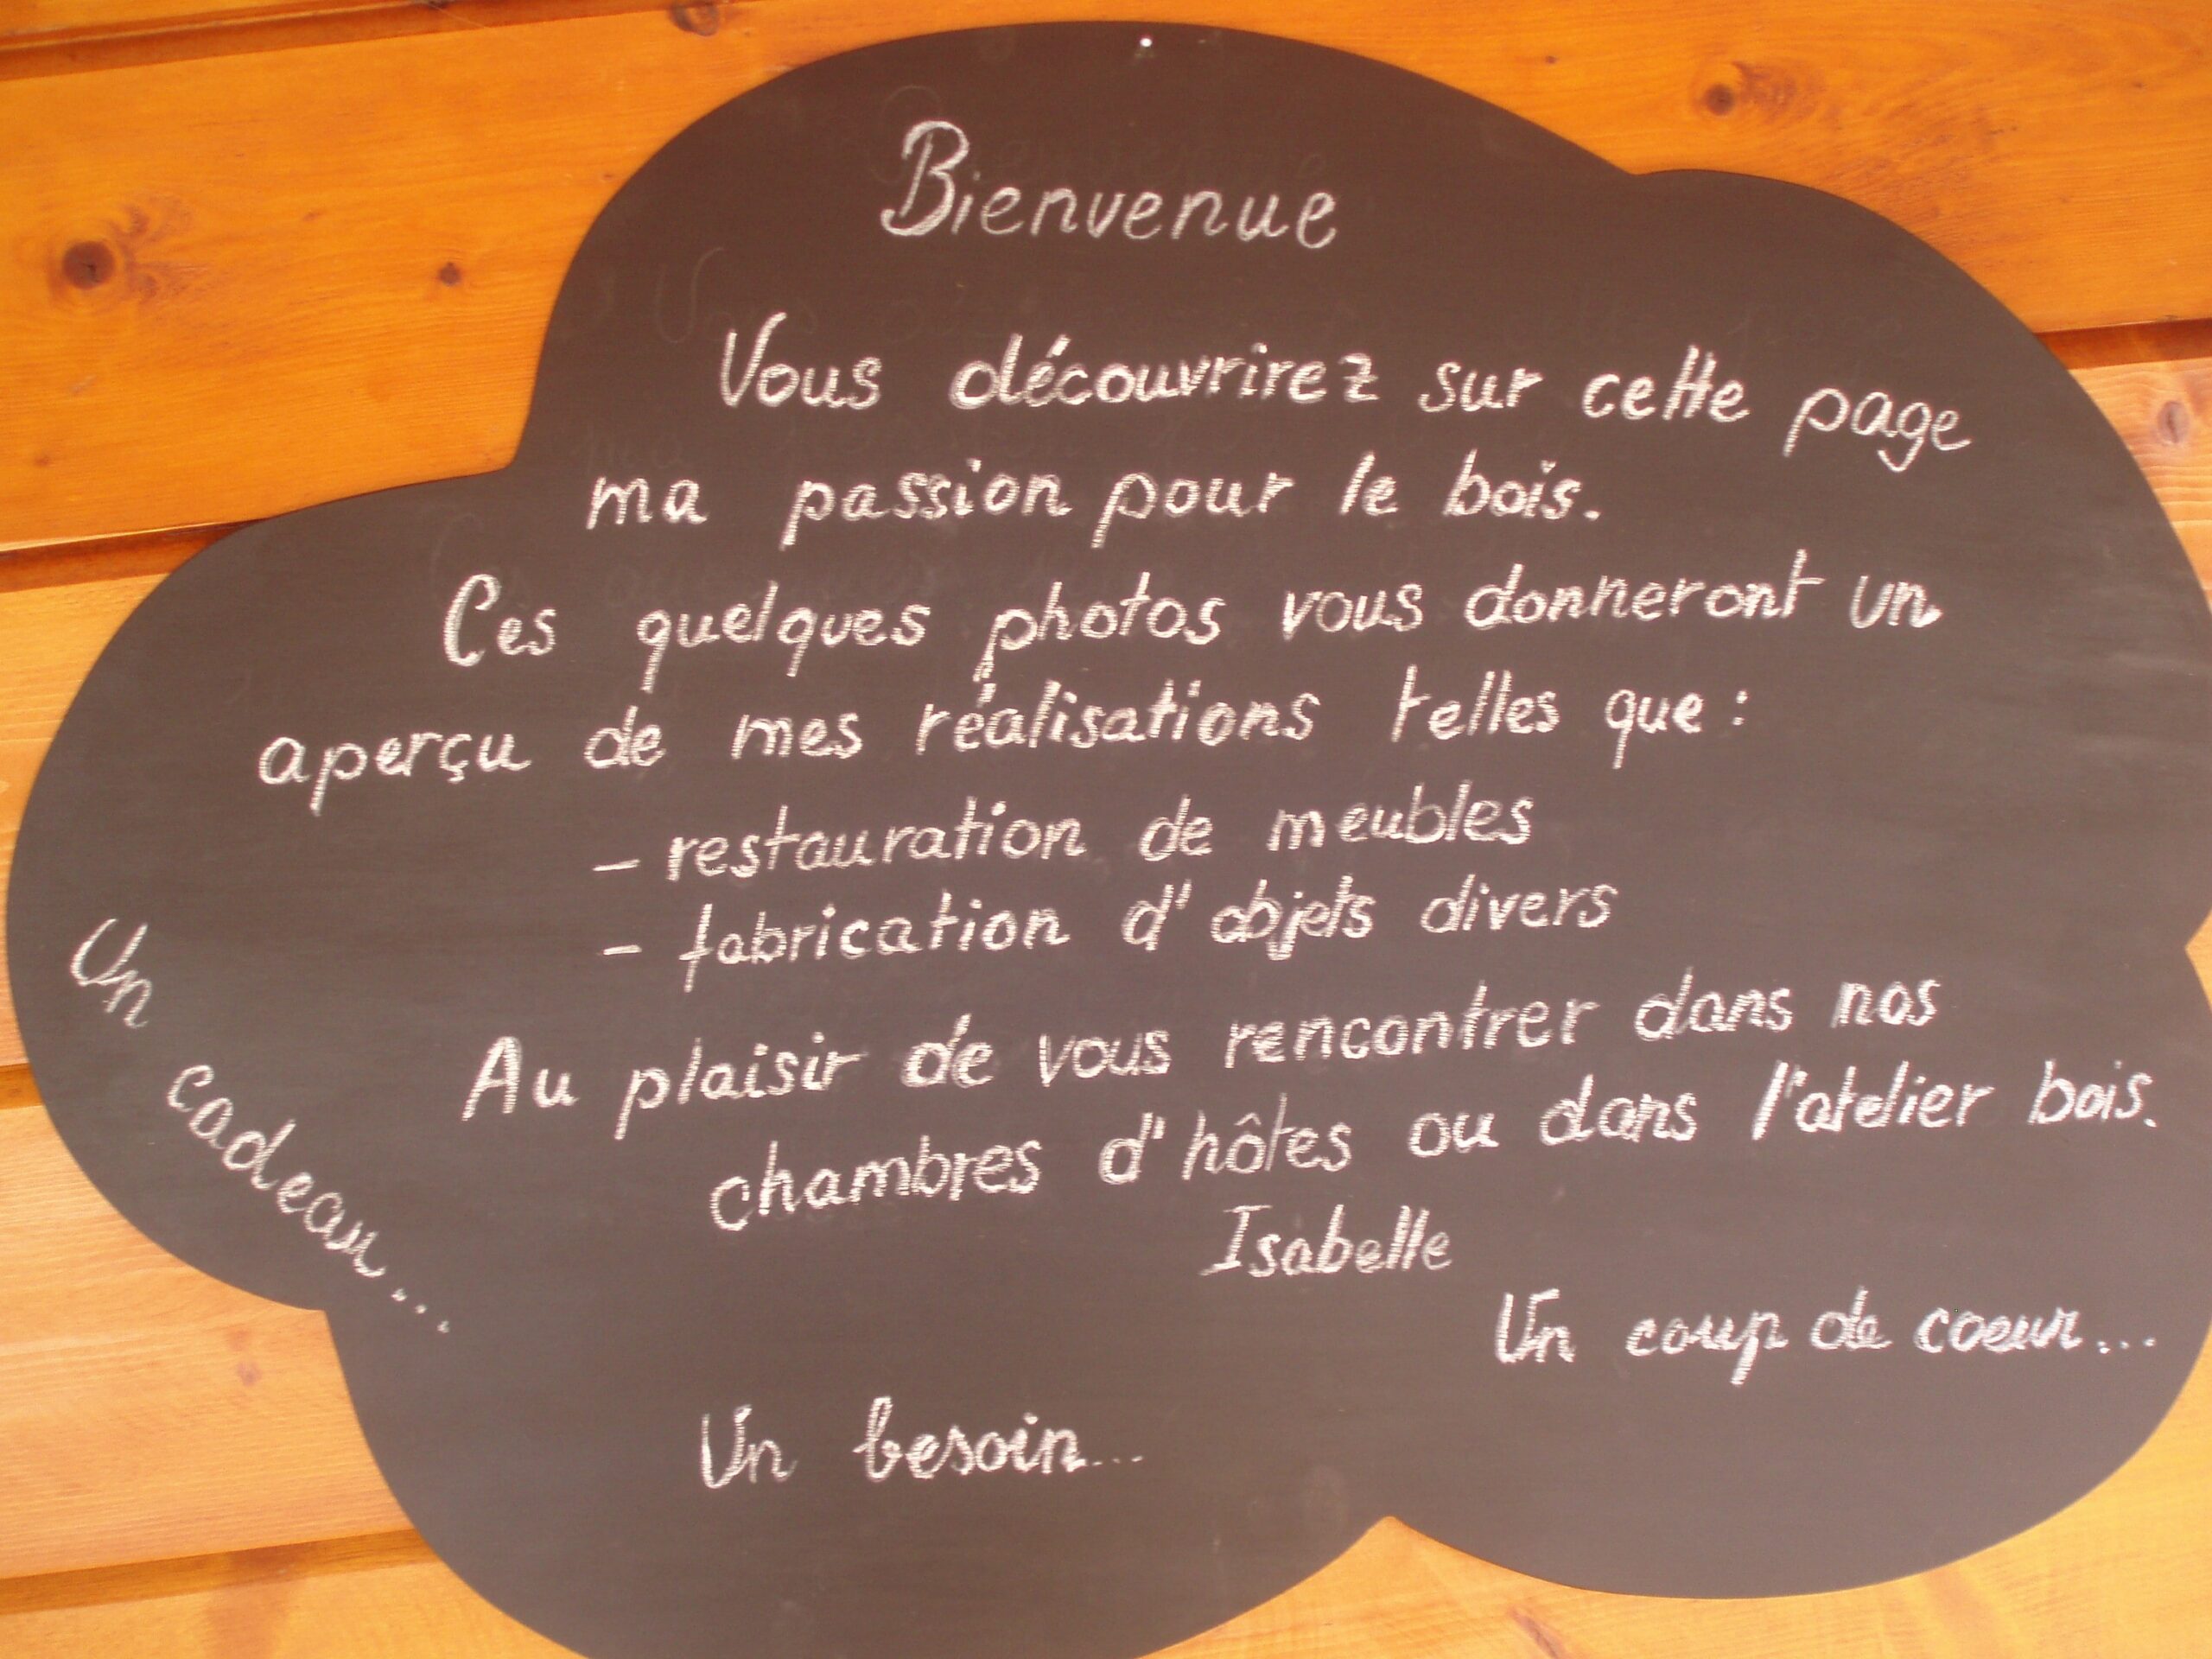 Bienvenue
Vous découvrirez sur cette page
ma passion pour le bois.
Ces quelques photos vous donneront un
aperçu de mes réalisations telles que :
- restauration de meubles
- fabrication d'objets divers
Au plaisir de vous rencontrer dans nos
chambres d'hôtes ou dans l'atelier bois.
Isabelle
Un cadeau...
Un coup de coeur...
Un besoin...